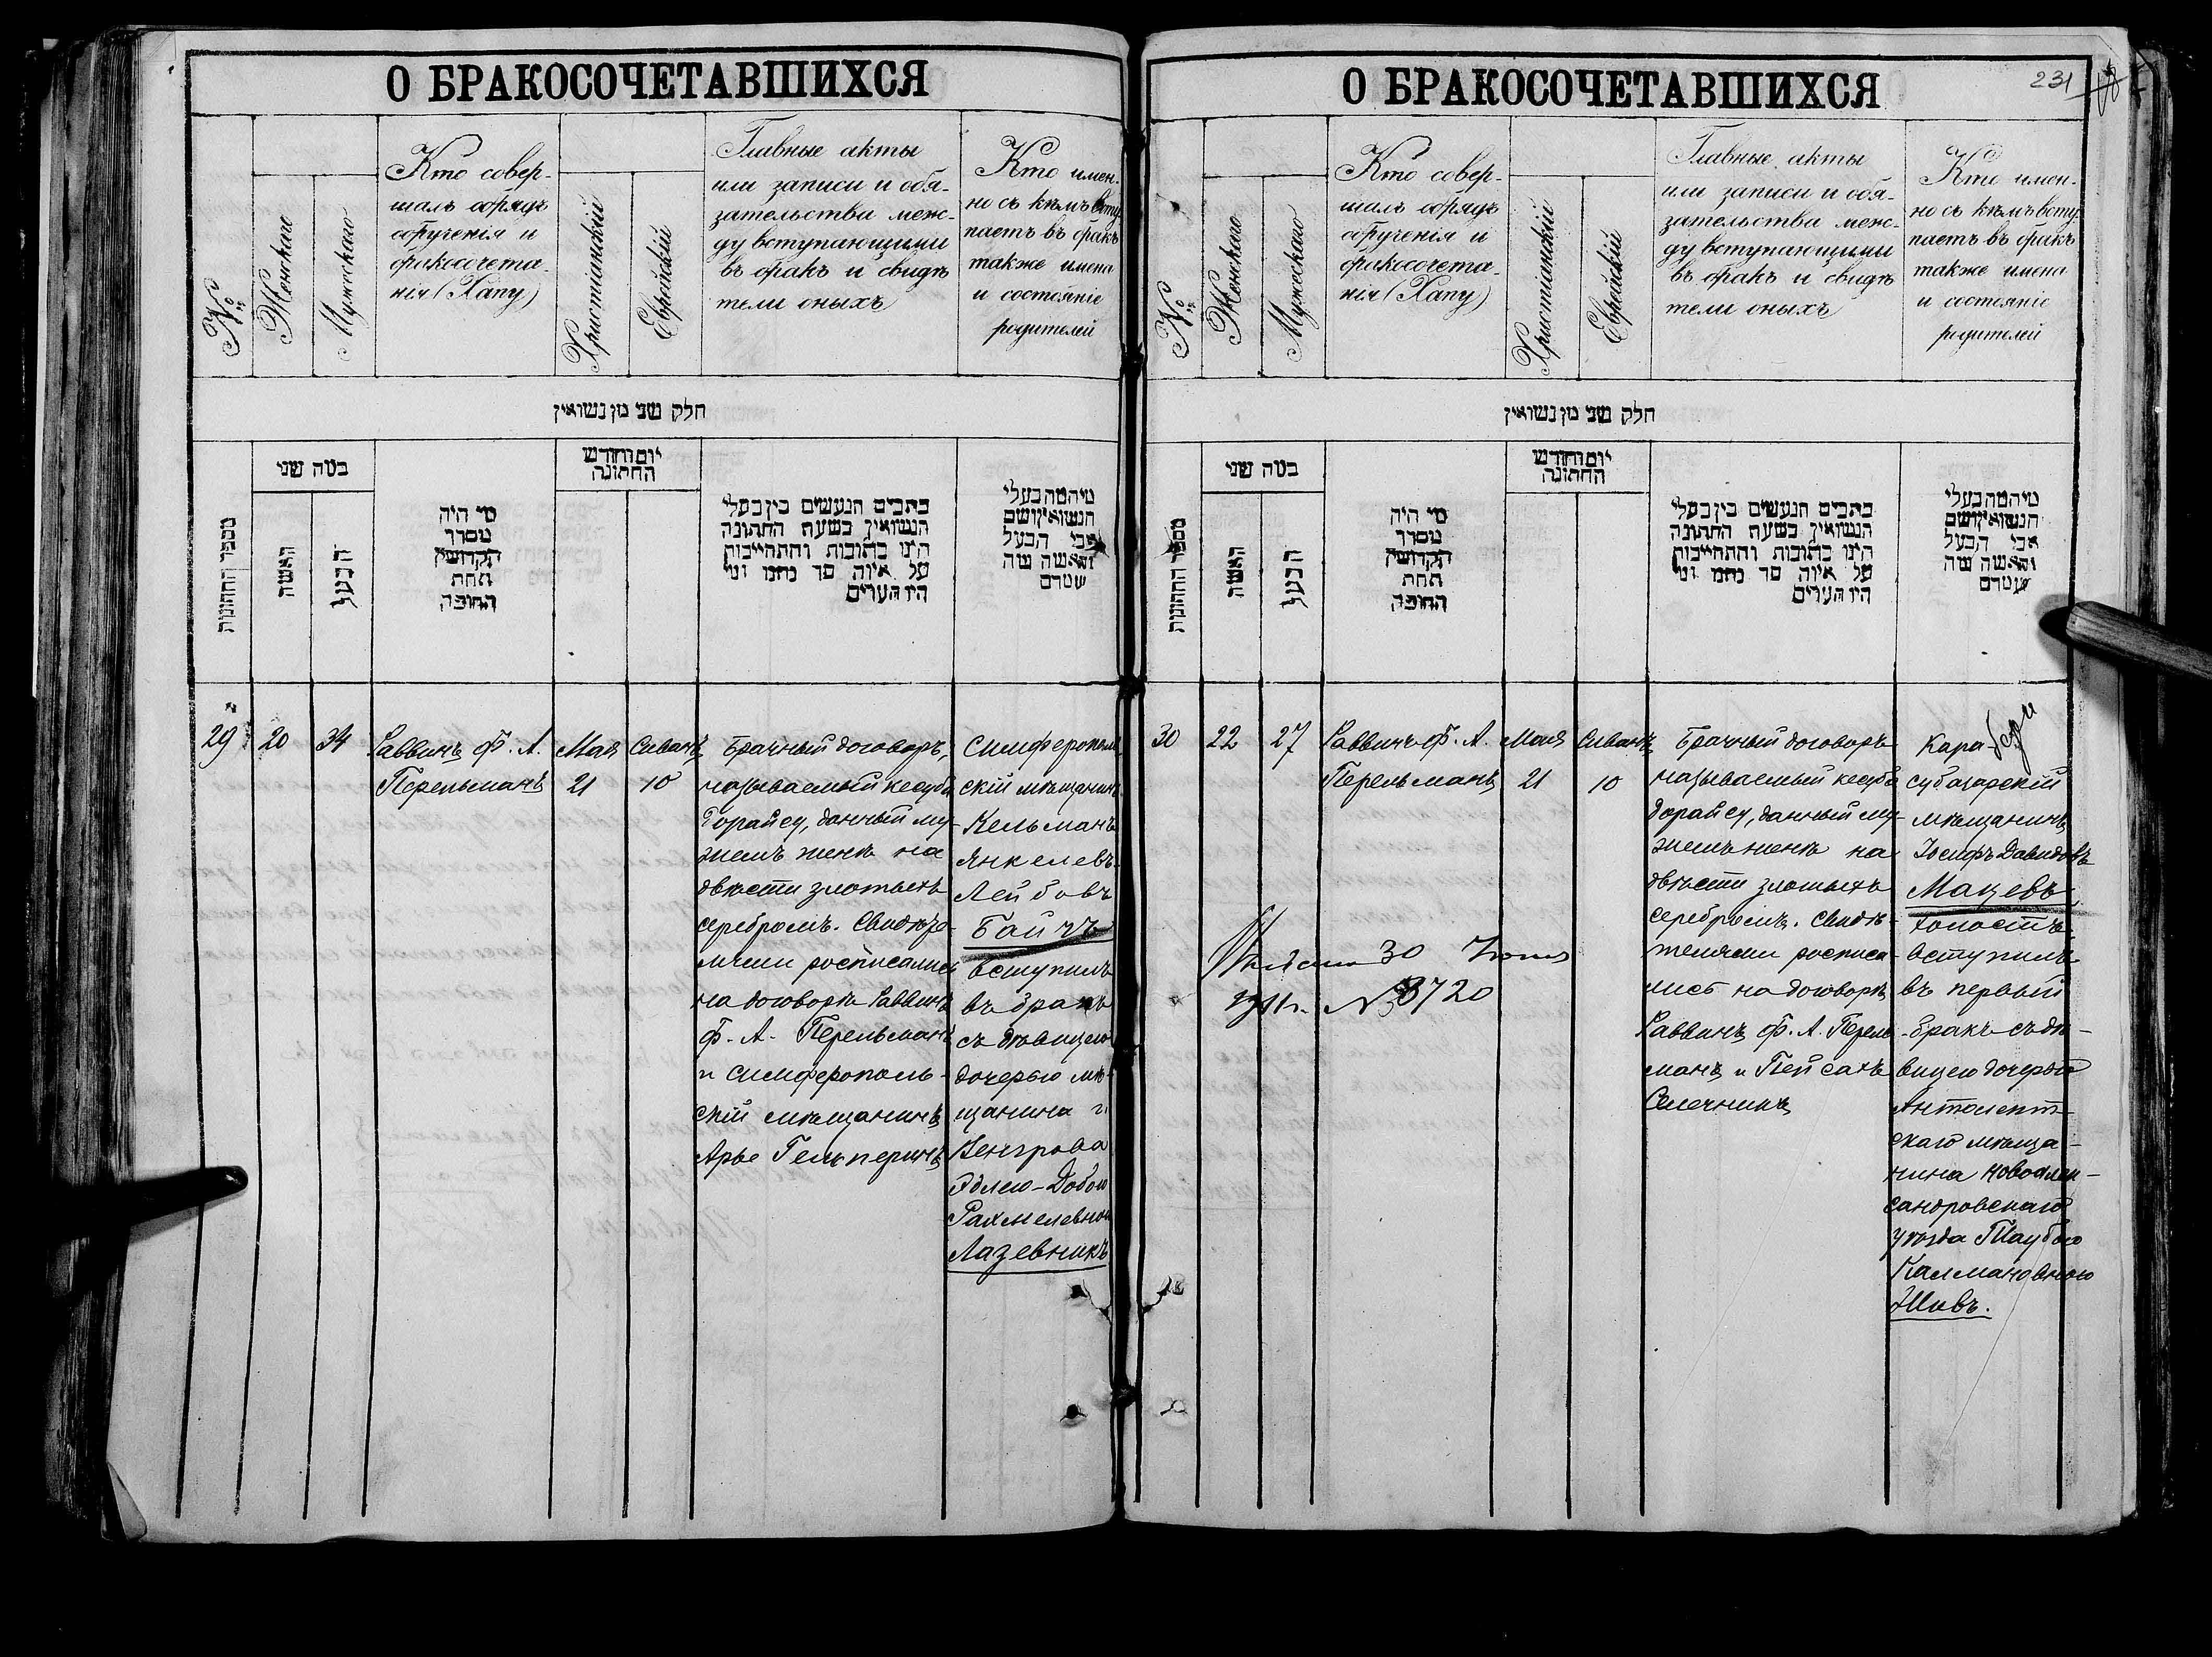 О БРАКОСОЧЕТАВШИХСЯ
№
Женскаго
Мужескаго
Кто совер-
шалъ обрядъ
обрученія и
бракосочета-
нія (Хапу)
Христіанскій
Еврейскій
Главные акты
или записи и обя-
зательства меж-
ду вступающими
въ бракъ и свидѣ
тели оныхъ
Кто имен-
но съ кѣмъ всту
паетъ въ бракъ
также имена
и состояніе
родителей
חלק שני מן נשואין
מספר החתונות
כמה שני
האשה
הבעל
מי היה
מסדר
הקדושין
תחת
החופה
יום וחודש
החתונה
כתבים הנעשים בין בעלי
הנשואין בשעת החתונה
היינו כתובות והתחייבות
על איזה סך נתנו ומי
היו העדים
מי המה בעלי
הנשואין ושם
אבי הבעל
והאשה מה
עטרם
29
20
34
Раввинъ Ф. А.
Перельманъ
Мая
21
Сиванъ
10
Брачный договоръ,
называемый кесуба
Дорайсу, данный му-
жемъ женѣ на
двѣсти злотыхъ
серебромъ. Свидѣте-
лями росписались
на договорѣ Раввинъ
Ф. А. Перельманъ
и Симферополь-
скій мѣщанинъ
Арье Гельперинъ
Симферополь
скій мѣщанинъ
Кельманъ
Янкелевъ-
Лейбовъ
Байчъ
вступилъ
въ бракъ
съ дѣвицею
дочерью мѣ-
щанина г.
Венгрова
Эдлею-Добою
Рахмелевною
Лазевникъ
О БРАКОСОЧЕТАВШИХСЯ
231
№
Женскаго
Мужескаго
Кто совер-
шалъ обрядъ
обрученія и
бракосочета-
нія (Хапу)
Христіанскій
Еврейскій
Главные акты
или записи и обя-
зательства меж-
ду вступающими
въ бракъ и свидѣ
тели оныхъ
Кто имен-
но съ кѣмъ всту
паетъ въ бракъ
также имена
и состояніе
родителей
חלק שני מן נשואין
מספר החתונות
כמה שני
האשה
הבעל
מי היה
מסדר
הקדושין
תחת
החופה
יום וחודש
החתונה
כתבים הנעשים בין בעלי
הנשואין בשעת החתונה
היינו כתובות והתחייבות
על איזה סך נתנו ומי
היו העדים
מי המה בעלי
הנשואין ושם
אבי הבעל
והאשה מה
עטרם
30
22
27
Раввинъ Ф. А.
Перельманъ
Мая
21
Сиванъ
10
Брачный договоръ
называемый кесуба
дорайсу, данный му-
жемъ женѣ на
двѣсти злотыхъ
серебромъ. Свидѣ-
телями росписа-
лись на договорѣ
Раввинъ Ф. А. Перель
манъ и Пейсахъ
Олечникъ
Кара-
субазарскій
мѣщанинъ
Іосифъ Давидовъ
Мацевъ
холостъ
вступилъ
въ первый
бракъ съ дѣ-
вицею дочерью
Антолепт-
скаго мѣща-
нина Новоалек-
сандровскаго
уѣзда Таубою
Калмановною
Живъ.
30
№ 8720